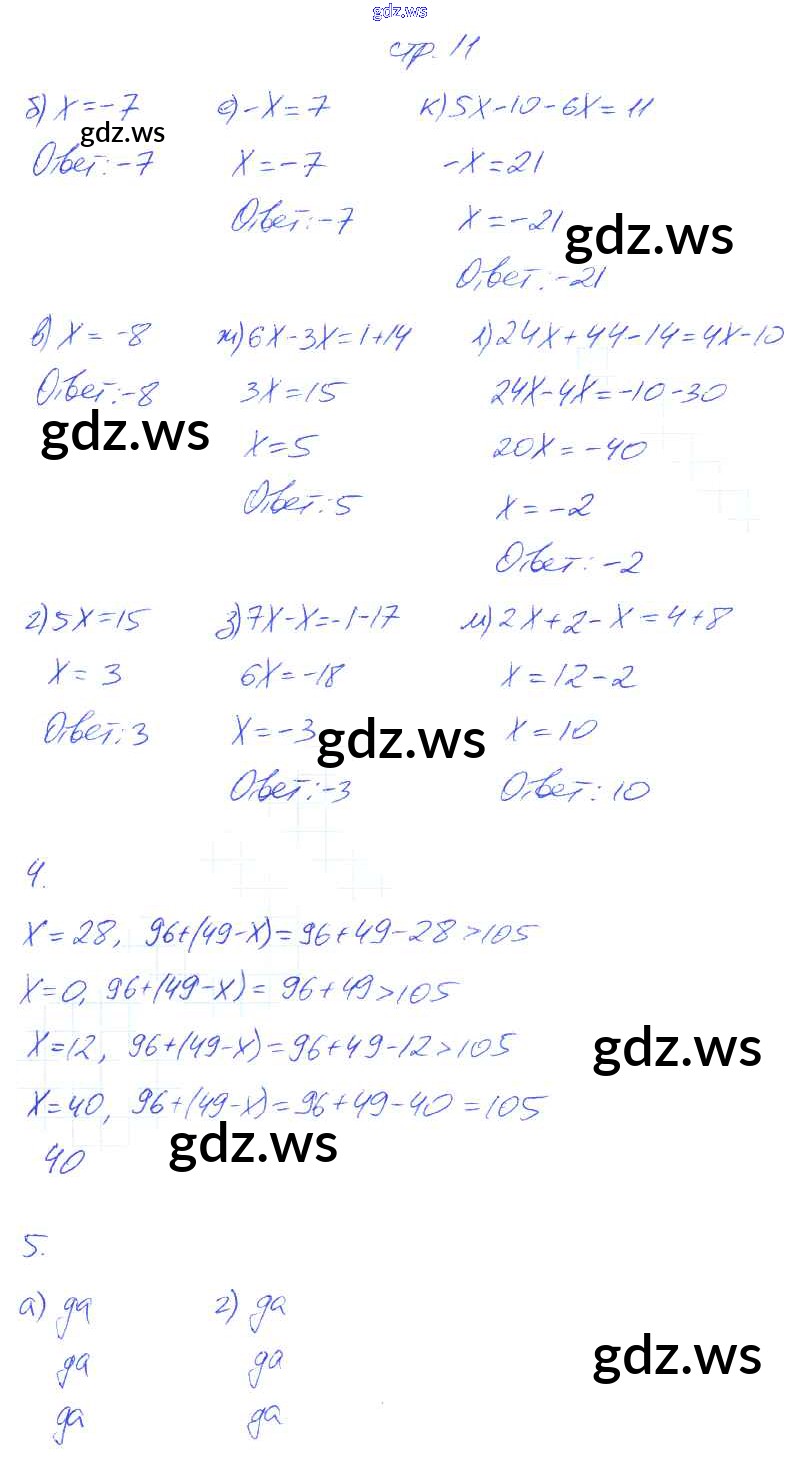 gdz.ws
стр. 11
б) x = -7
gdz.ws
Ответ: -7
е) -x = 7
x = -7
Ответ: -7
к) 5x - 10 - 6x = 11
-x = 21
x = -21
gdz.ws
Ответ: -21
в) x = -8
Ответ: -8
gdz.ws
ж) 6x - 3x = 1 + 14
3x = 15
x = 5
Ответ: 5
л) 24x + 44 - 14 = 4x - 10
24x - 4x = -10 - 30
20x = -40
x = -2
Ответ: -2
г) 5x = 15
x = 3
Ответ: 3
з) 7x - x = -1 - 17
6x = -18
x = -3
gdz.ws
Ответ: -3
м) 2x + 2 - x = 4 + 8
x = 12 - 2
x = 10
Ответ: 10
4.
x = 28, 96 + (49 - x) = 96 + 49 - 28 > 105
x = 0, 96 + (49 - x) = 96 + 49 > 105
x = 12, 96 + (49 - x) = 96 + 49 - 12 > 105
gdz.ws
x = 40, 96 + (49 - x) = 96 + 49 - 40 = 105
gdz.ws
40
5.
а) да
да
да
г) да
да
да
gdz.ws